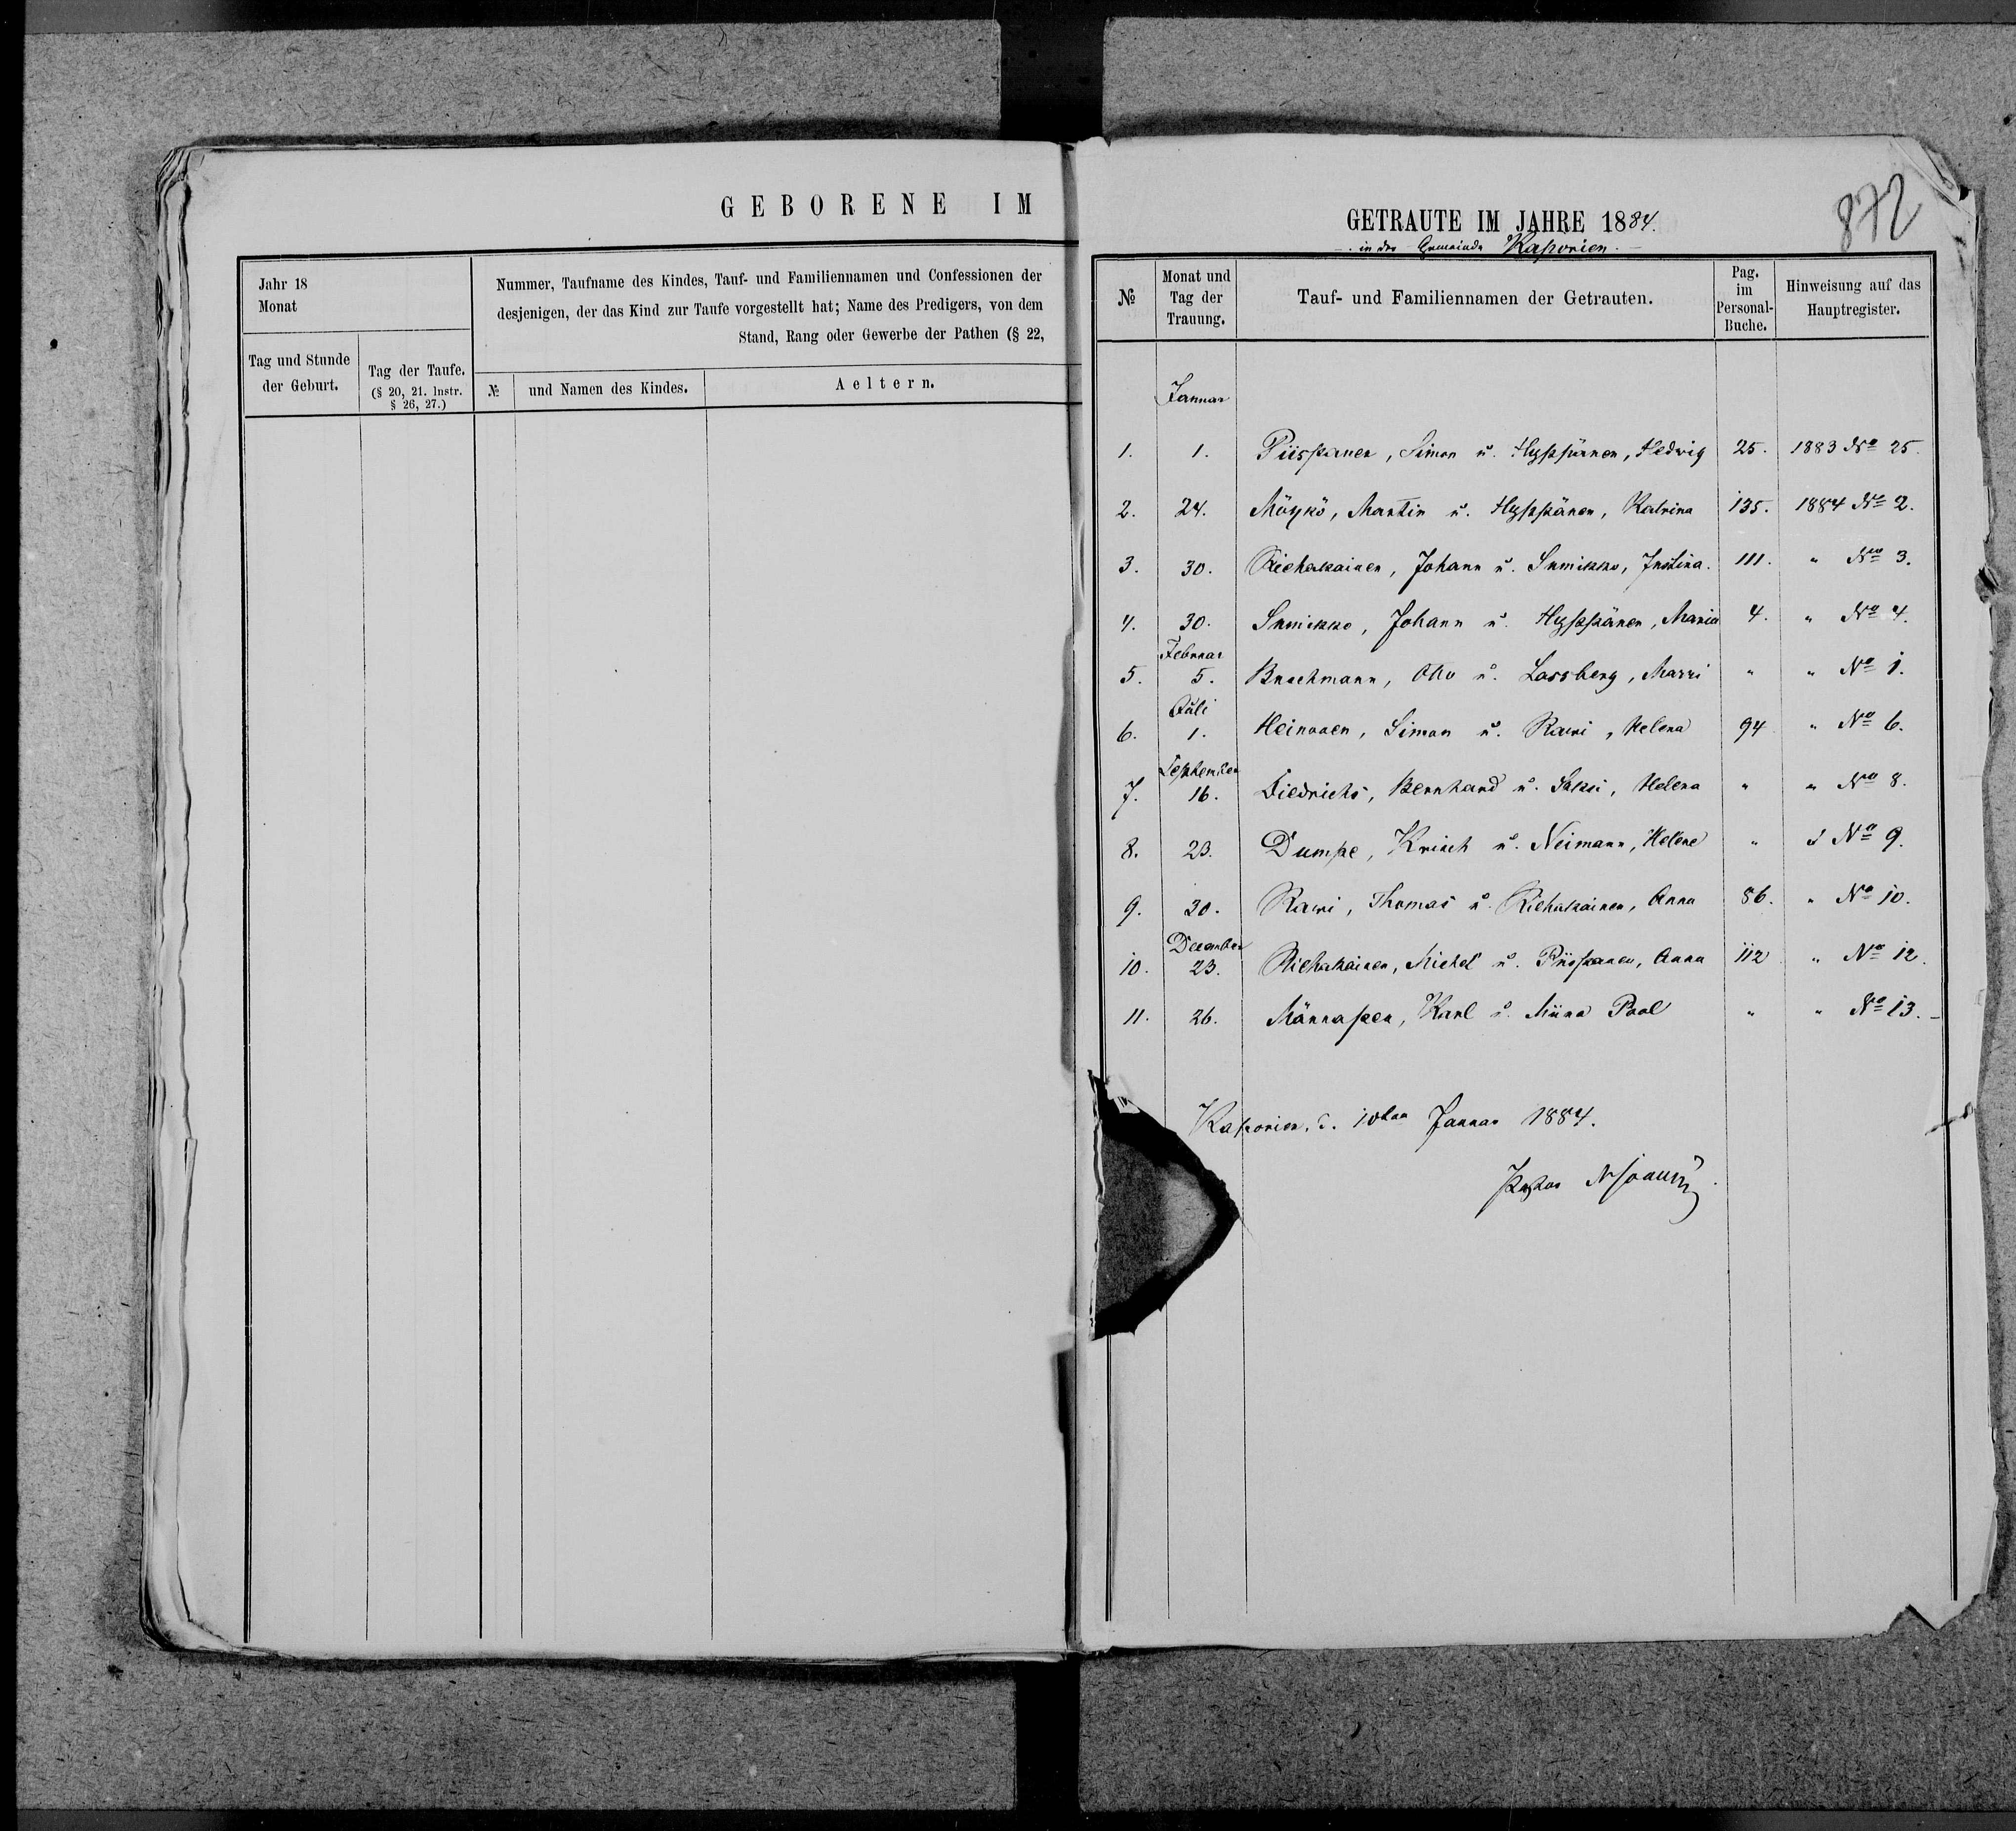 GEBORENE IM
Jahr 18
Monat
Nummer, Taufname des Kindes, Tauf- und Familiennamen und Confessionen der
desjenigen, der das Kind zur Taufe vorgestellt hat; Name des Predigers, von dem
Stand, Rang oder Gewerbe der Pathen (§ 22,
Tag und Stunde
der Geburt.
Tag der Taufe.
(§ 20, 21. Instr.
§ 26, 27.)
№ und Namen des Kindes.
Aeltern.
872
GETRAUTE IM JAHRE 1884.
in der Gemeinde Kaporien.
№
Monat und
Tag der
Trauung.
Tauf- und Familiennamen der Getrauten.
Pag.
im
Personal-
Buche.
Hinweisung auf das
Hauptregister.
Januar
1. 1. Piispanen, Simon u. Hyppänen, Hedwig 25. 1883 № 25.
2. 24. Möykö, Martin u. Hyppänen, Katrina 135. 1884 № 2.
3. 30. Riehakainen, Johann u. Sumikko, Justina. 111. " № 3.
4. 30. Sumikko, Johann u. Hyppänen, Maria 4. " № 4.
Februar
5. 5. Buschmann, Otto u. Lossberg, Marri " " № 1.
Juli
6. 1. Heinonen, Simon u. Rawi, Helena 94 " № 6.
September
7. 16. Diedrichs, Bernhard u. Saksi, Helena " " № 8.
8. 23. Dumpe, Krisch u. Neimann, Helene " " № 9.
9. 30. Rawi, Thomas u. Riehakainen, Anna 86. " № 10.
December
10. 23. Riehakainen, Michel u. Piispanen, Anna 112 " № 12.
11. 26. Männapen, Karl u. Miina Pool " " № 13.
Kaporien, d. 10ten Januar 1884.
Pastor